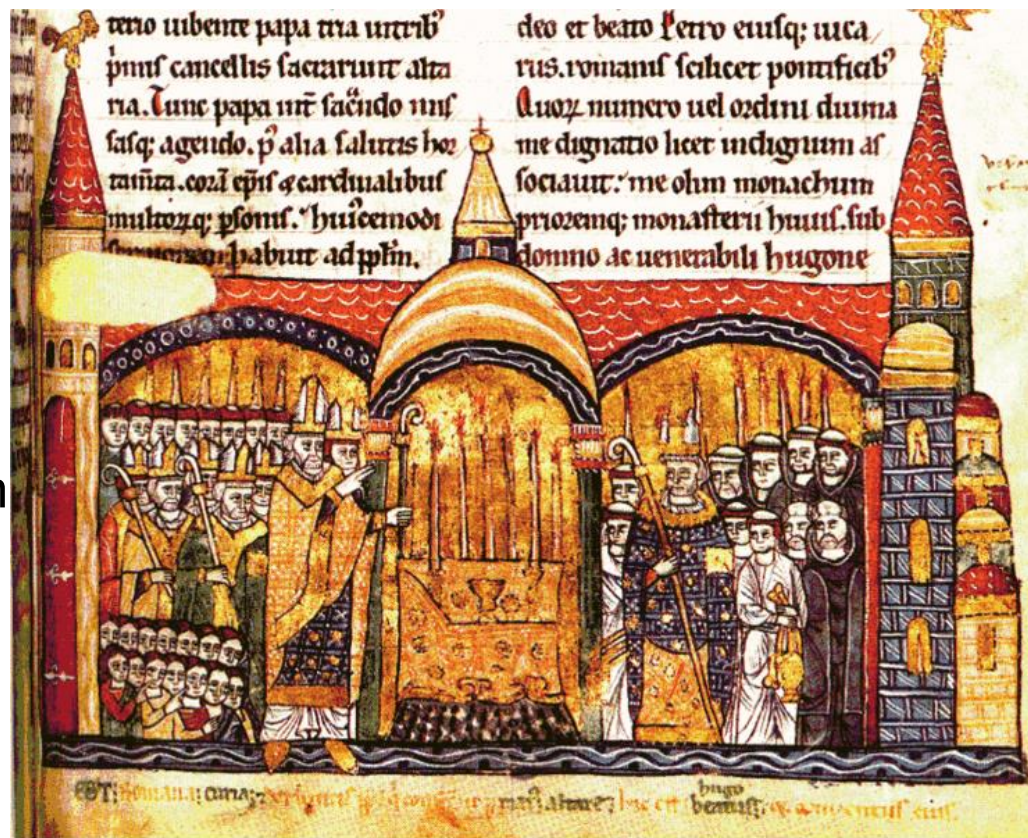 terio iubente papa tria in tribꝰ
pͥmis cancellis sacrarunt alta
ria. Tunc papa int̄ sac̄ndo mis
sasq; agendo. p̄ alia salutis hor
tam̄ta. corā ep̄is & cardinalibus
multorꝝq; ꝑsonis. huiᵒcemodi
habuit ad pplm̄.
deo et beato Petro eiusq; uica
rus. romanis scilicet pontificibꝰ
Quoꝝ numero uel ordini diuina
me dignatio licet indignum as
sociauit. me olim monachum
prioremq; monasterii huius. sub
domno ac uenerabili hugone
n
hugo
romana curia; altare; hic est beatiss; conuentus eius.